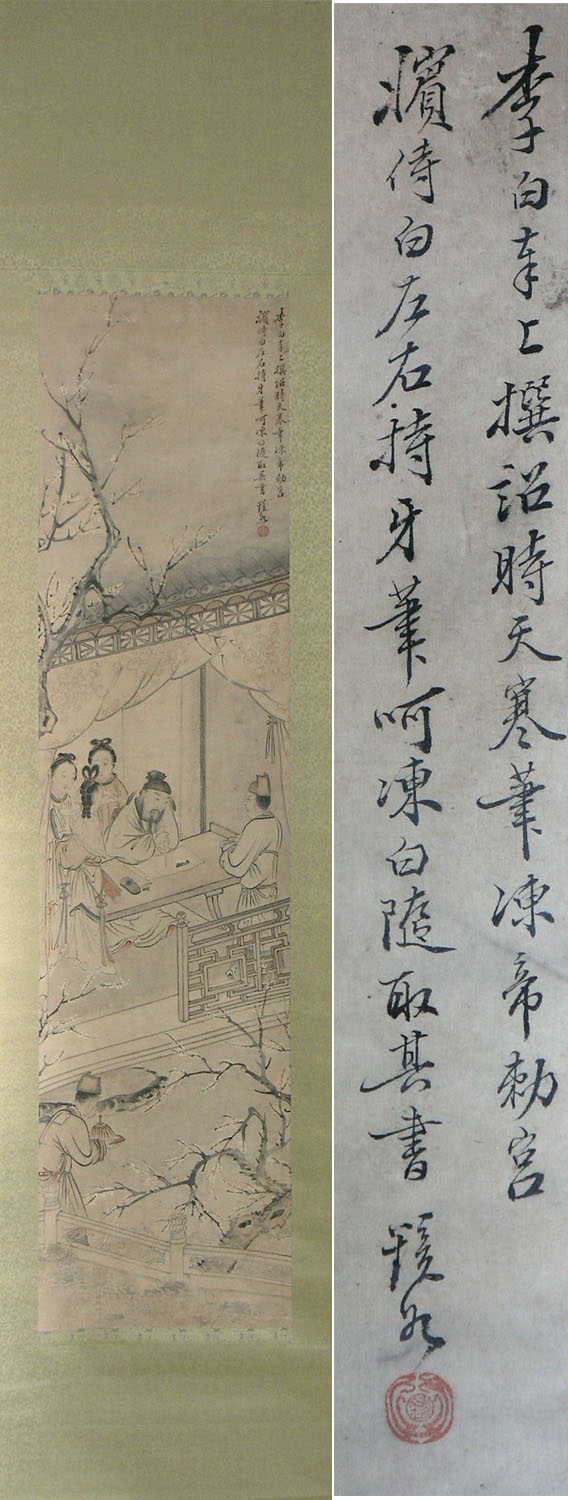 李白奉上撰詔時天寒筆凍帝勅宮
嬪侍白左右持牙筆呵凍白隨取其書 鏡如